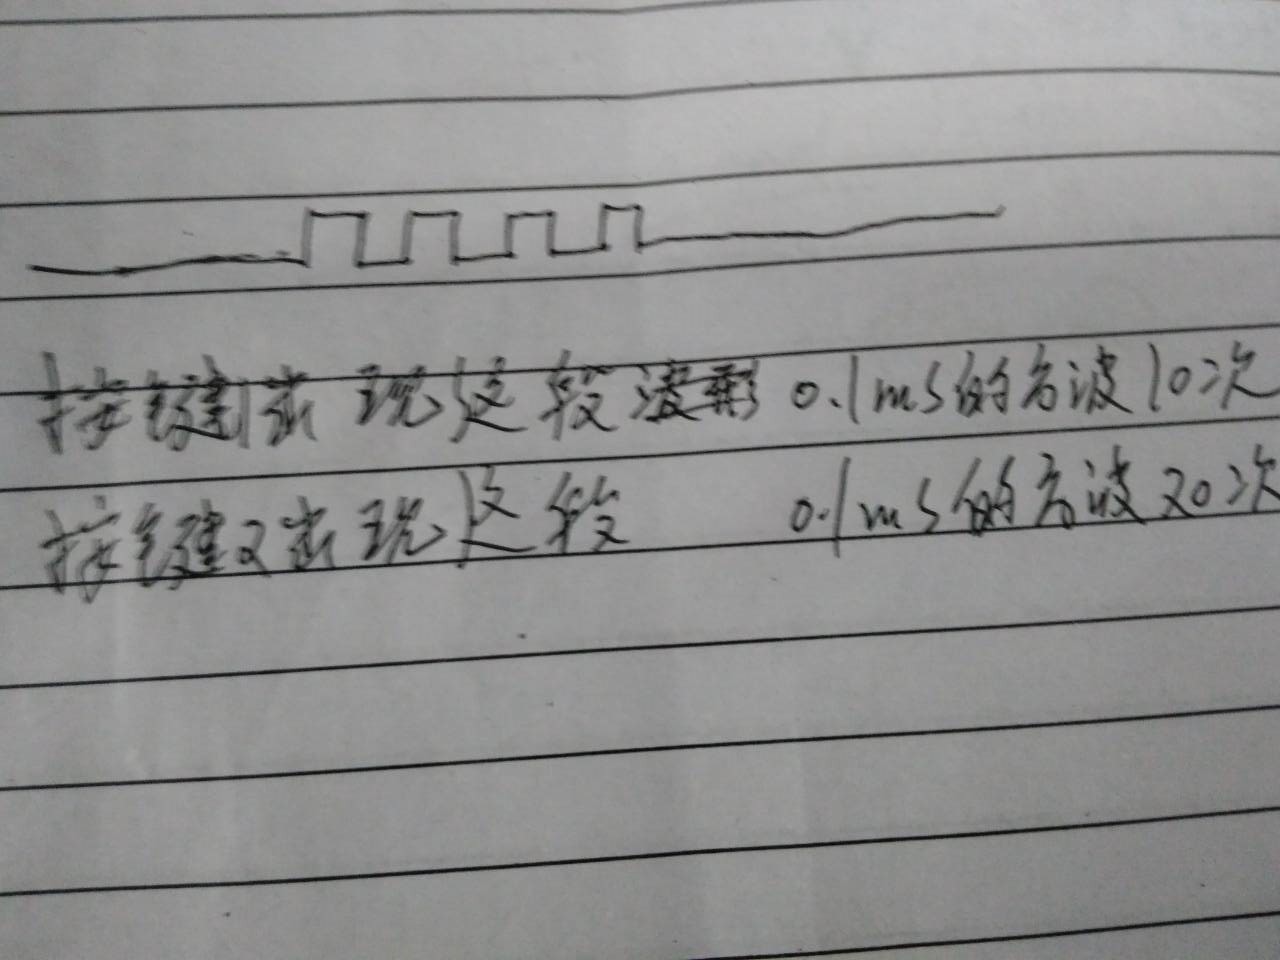 按键1出现这段波形 0.1ms的方波10次
按键2出现这段 0.1ms的方波20次